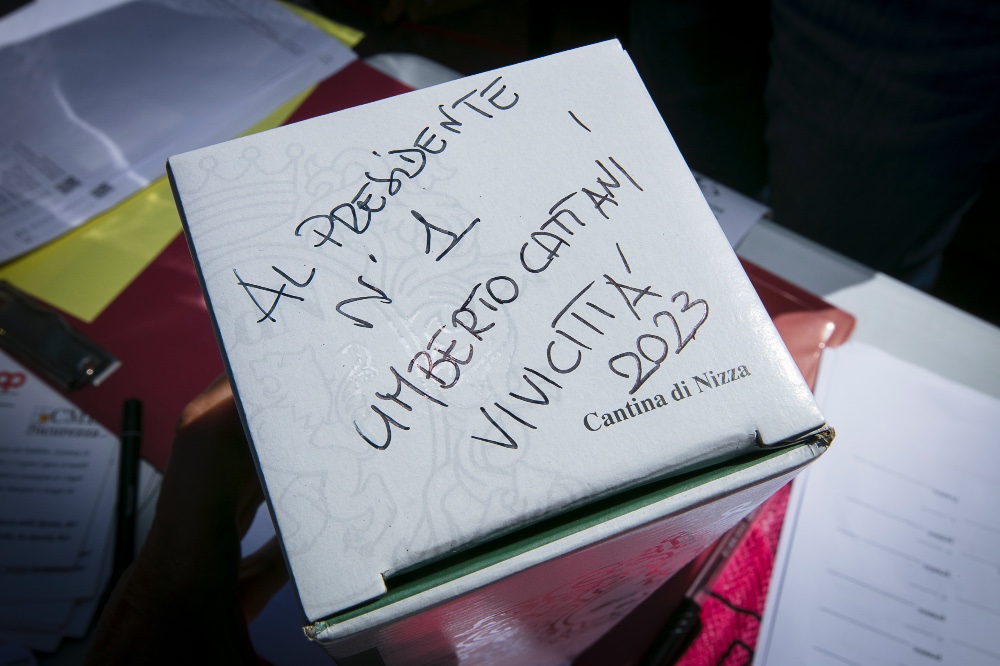 AL PRESIDENTE
N° 1
UMBERTO CATTANI
VIVICITTÀ
2023
Cantina di Nizza